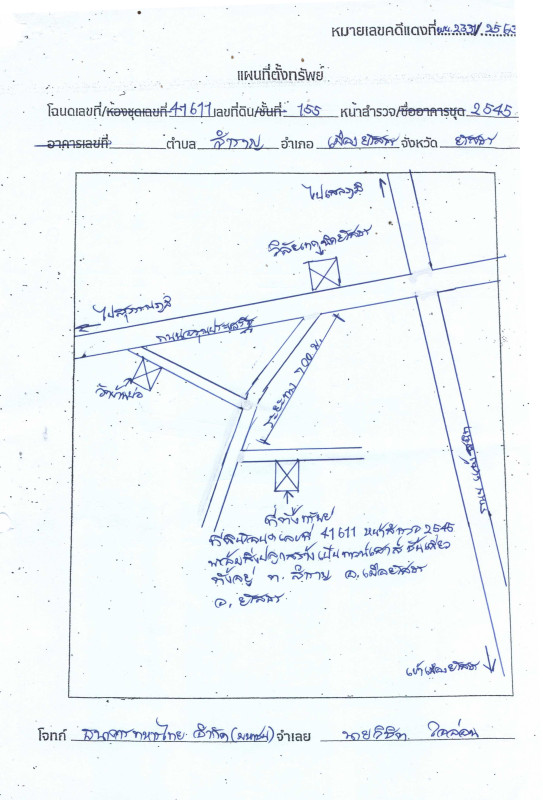 หมายเลขคดีแดงที่ ผบ. 233/2563
แผนที่ตั้งทรัพย์
โฉนดเลขที่/ห้องชุดเลขที่ 41611 เลขที่ดิน/ชั้นที่ 155 หน้าสำรวจ/ชื่ออาคารชุด 2545
อาคารเลขที่ ตำบล สำราญ อำเภอ เมืองยโสธร จังหวัด ยโสธร
ไปเลิงนกทา
วิทยาลัย ยโสธร
ไปสุวรรณภูมิ
ถนน
วัด
ระยะทาง 700 ม.
ถนน
ที่ตั้งทรัพย์
ที่ดินโฉนดเลขที่ 41611 หน้าสำรวจ 2545
พร้อมสิ่งปลูกสร้างเป็นทาวน์เฮาส์ชั้นเดียว
ตั้งอยู่ ต. สำราญ อ. เมืองยโสธร
จ. ยโสธร
เข้าเมืองยโสธร
โจทก์ ธนาคารทหารไทย จำกัด (มหาชน) จำเลย นาย